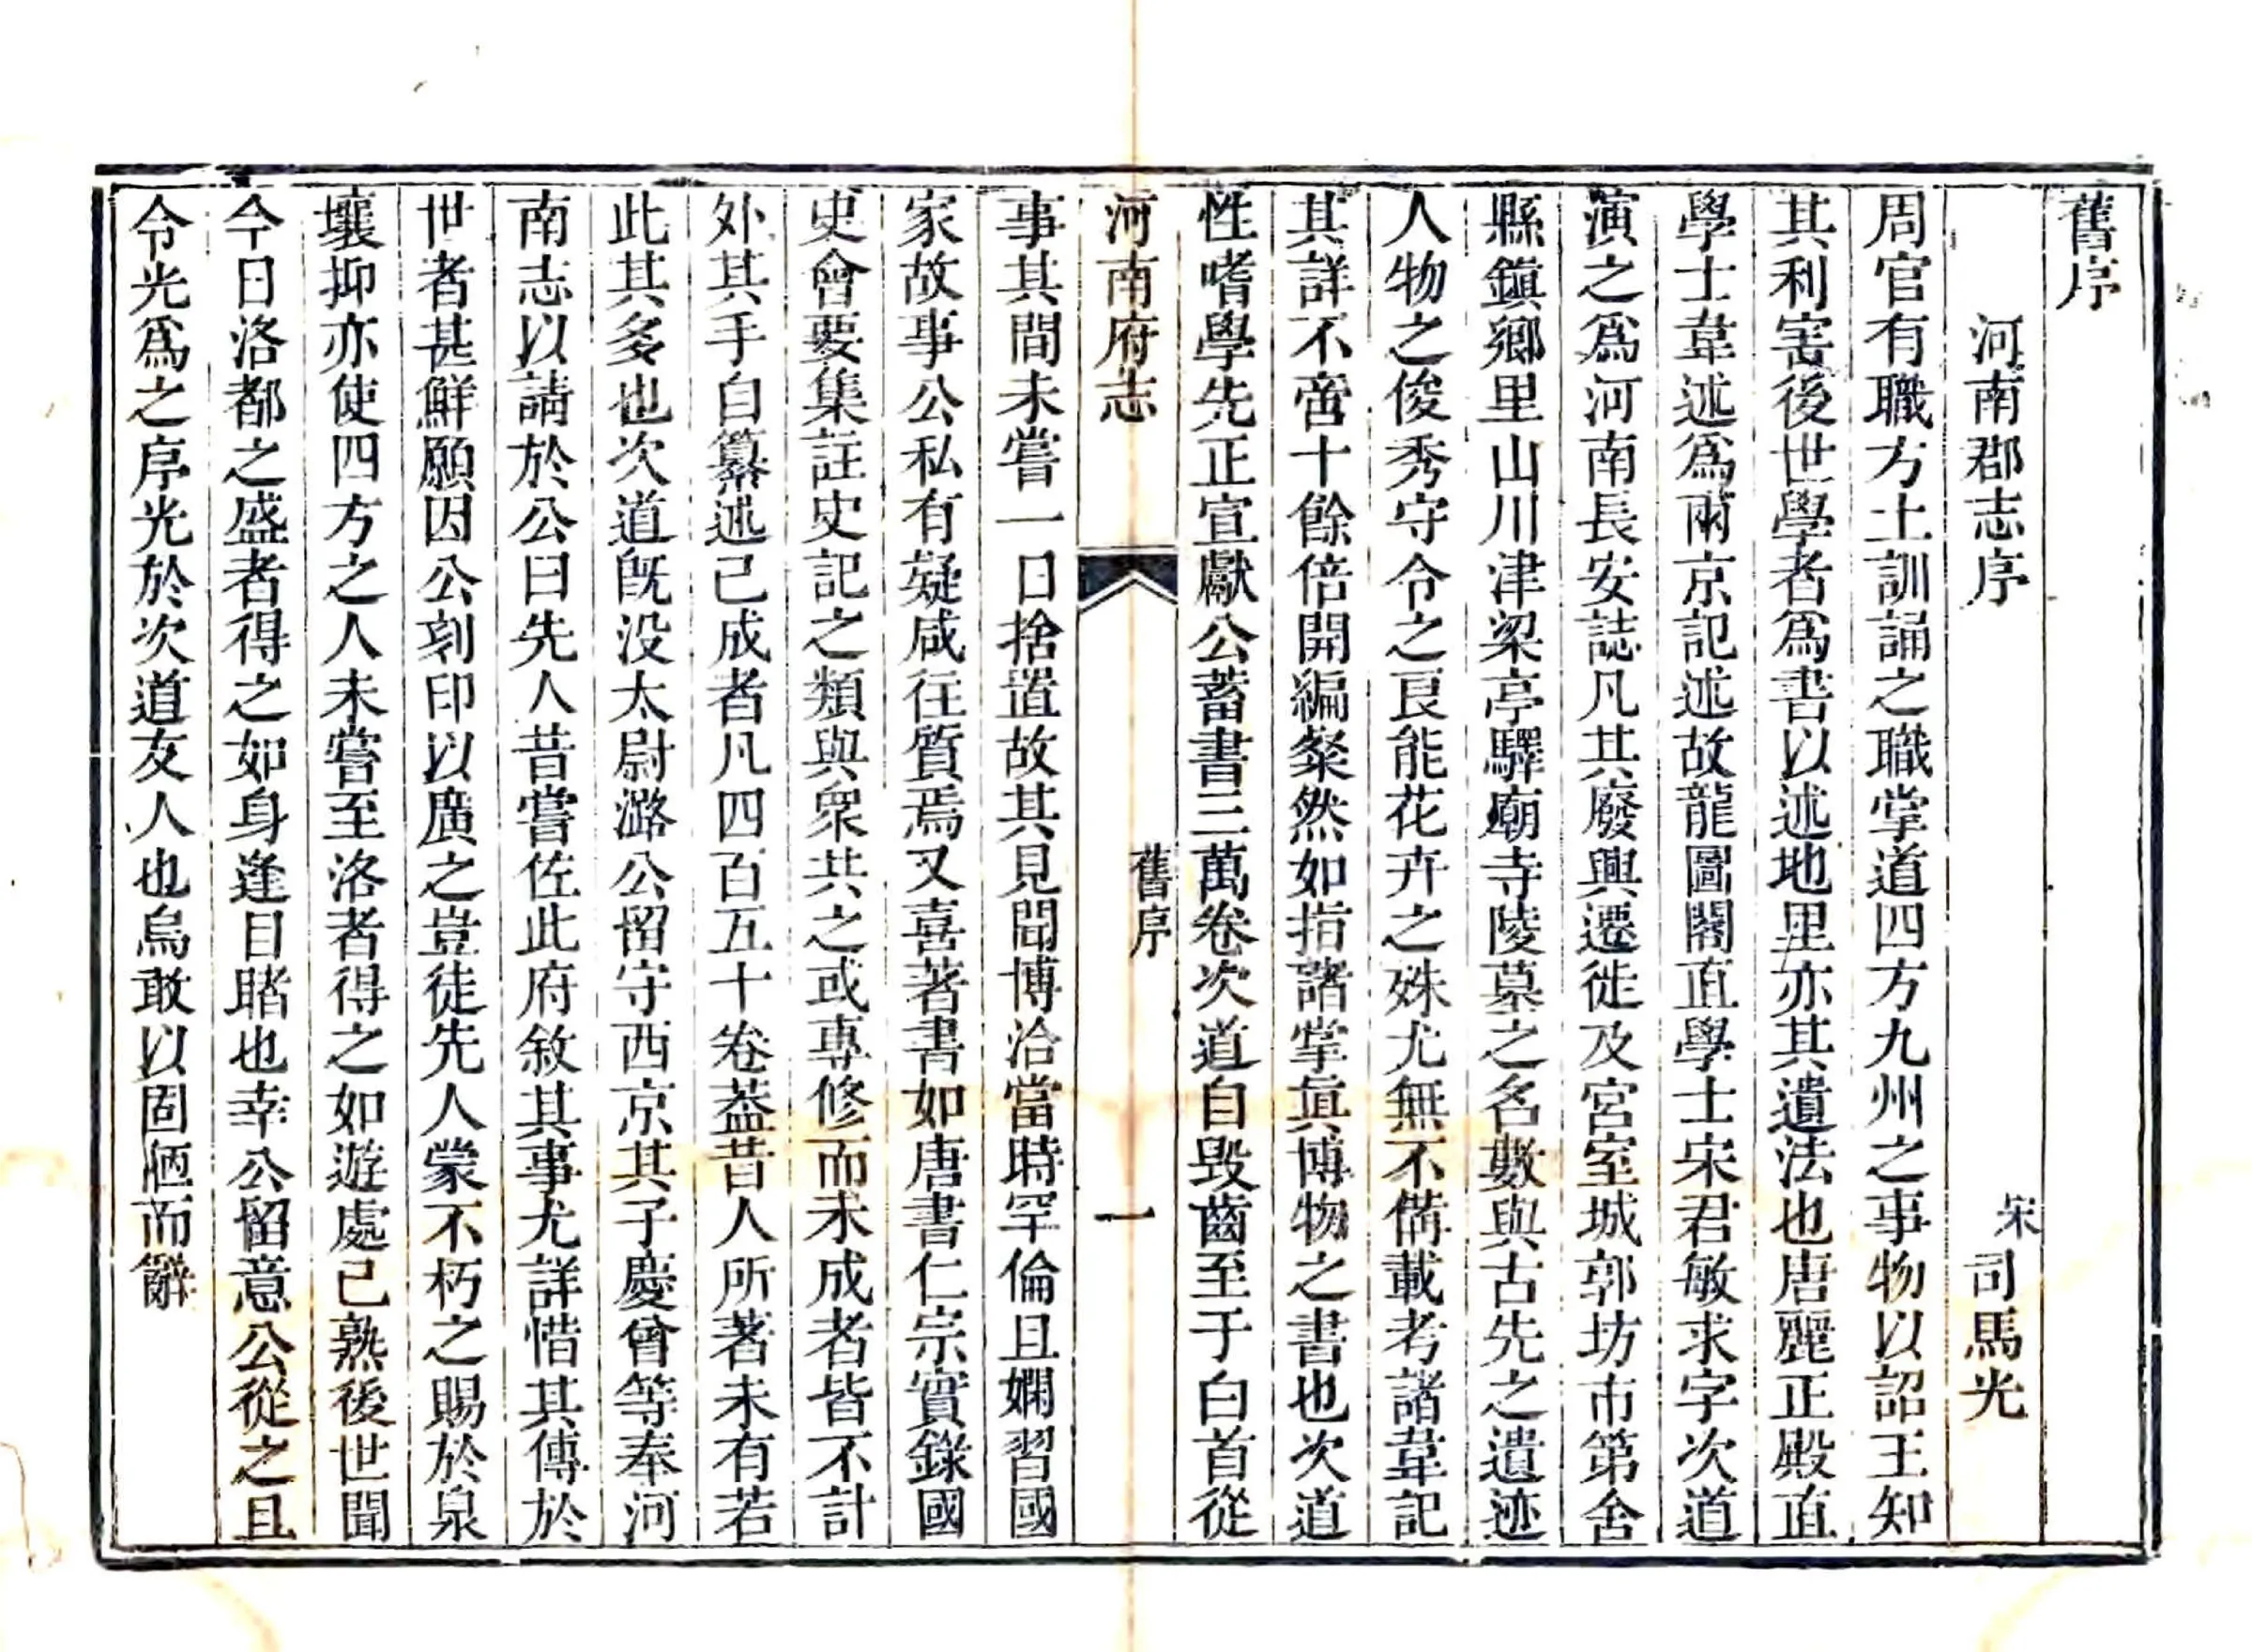 舊序
河南郡志序
宋司馬光
周官有職方土訓誦之職掌道四方九州之事物以詔王知
其利害後世學者爲書以述地里亦其遺法也唐麗正殿直
學士韋述爲兩京記述故龍圖閣直學士宋君敏求字次道
演之爲河南長安誌凡其廢興遷徙及宮室城郭坊市第舍
縣鎮鄉里山川津梁亭驛廟寺陵墓之名數與古先之遺迹
人物之俊秀守令之良能花卉之殊尤無不備載考諸韋記
其詳不啻十餘倍開編粲然如指諸掌眞博物之書也次道
性嗜學先正宣獻公蓄書三萬卷次道自毀齒至于白首從
河南府志
舊序
一
事其間未嘗一日捨置故其見聞博洽當時罕倫且嫻習國
家故事公私有疑咸往質焉又喜著書如唐書仁宗實錄國
史會要集註史記之類與衆共之或專修而未成者皆不計
外其手自纂述已成者凡四百五十卷葢昔人所著未有若
此其多也次道旣没太尉潞公留守西京其子慶曾等奉河
南志以請於公曰先人昔嘗佐此府敘其事尤詳惜其傳於
世者甚鮮願因公刻印以廣之豈徒先人蒙不朽之賜於泉
壤抑亦使四方之人未嘗至洛者得之如遊處已熟後世聞
今日洛都之盛者得之如身逢目睹也幸公留意公從之且
令光爲之序光於次道友人也烏敢以固陋而辭